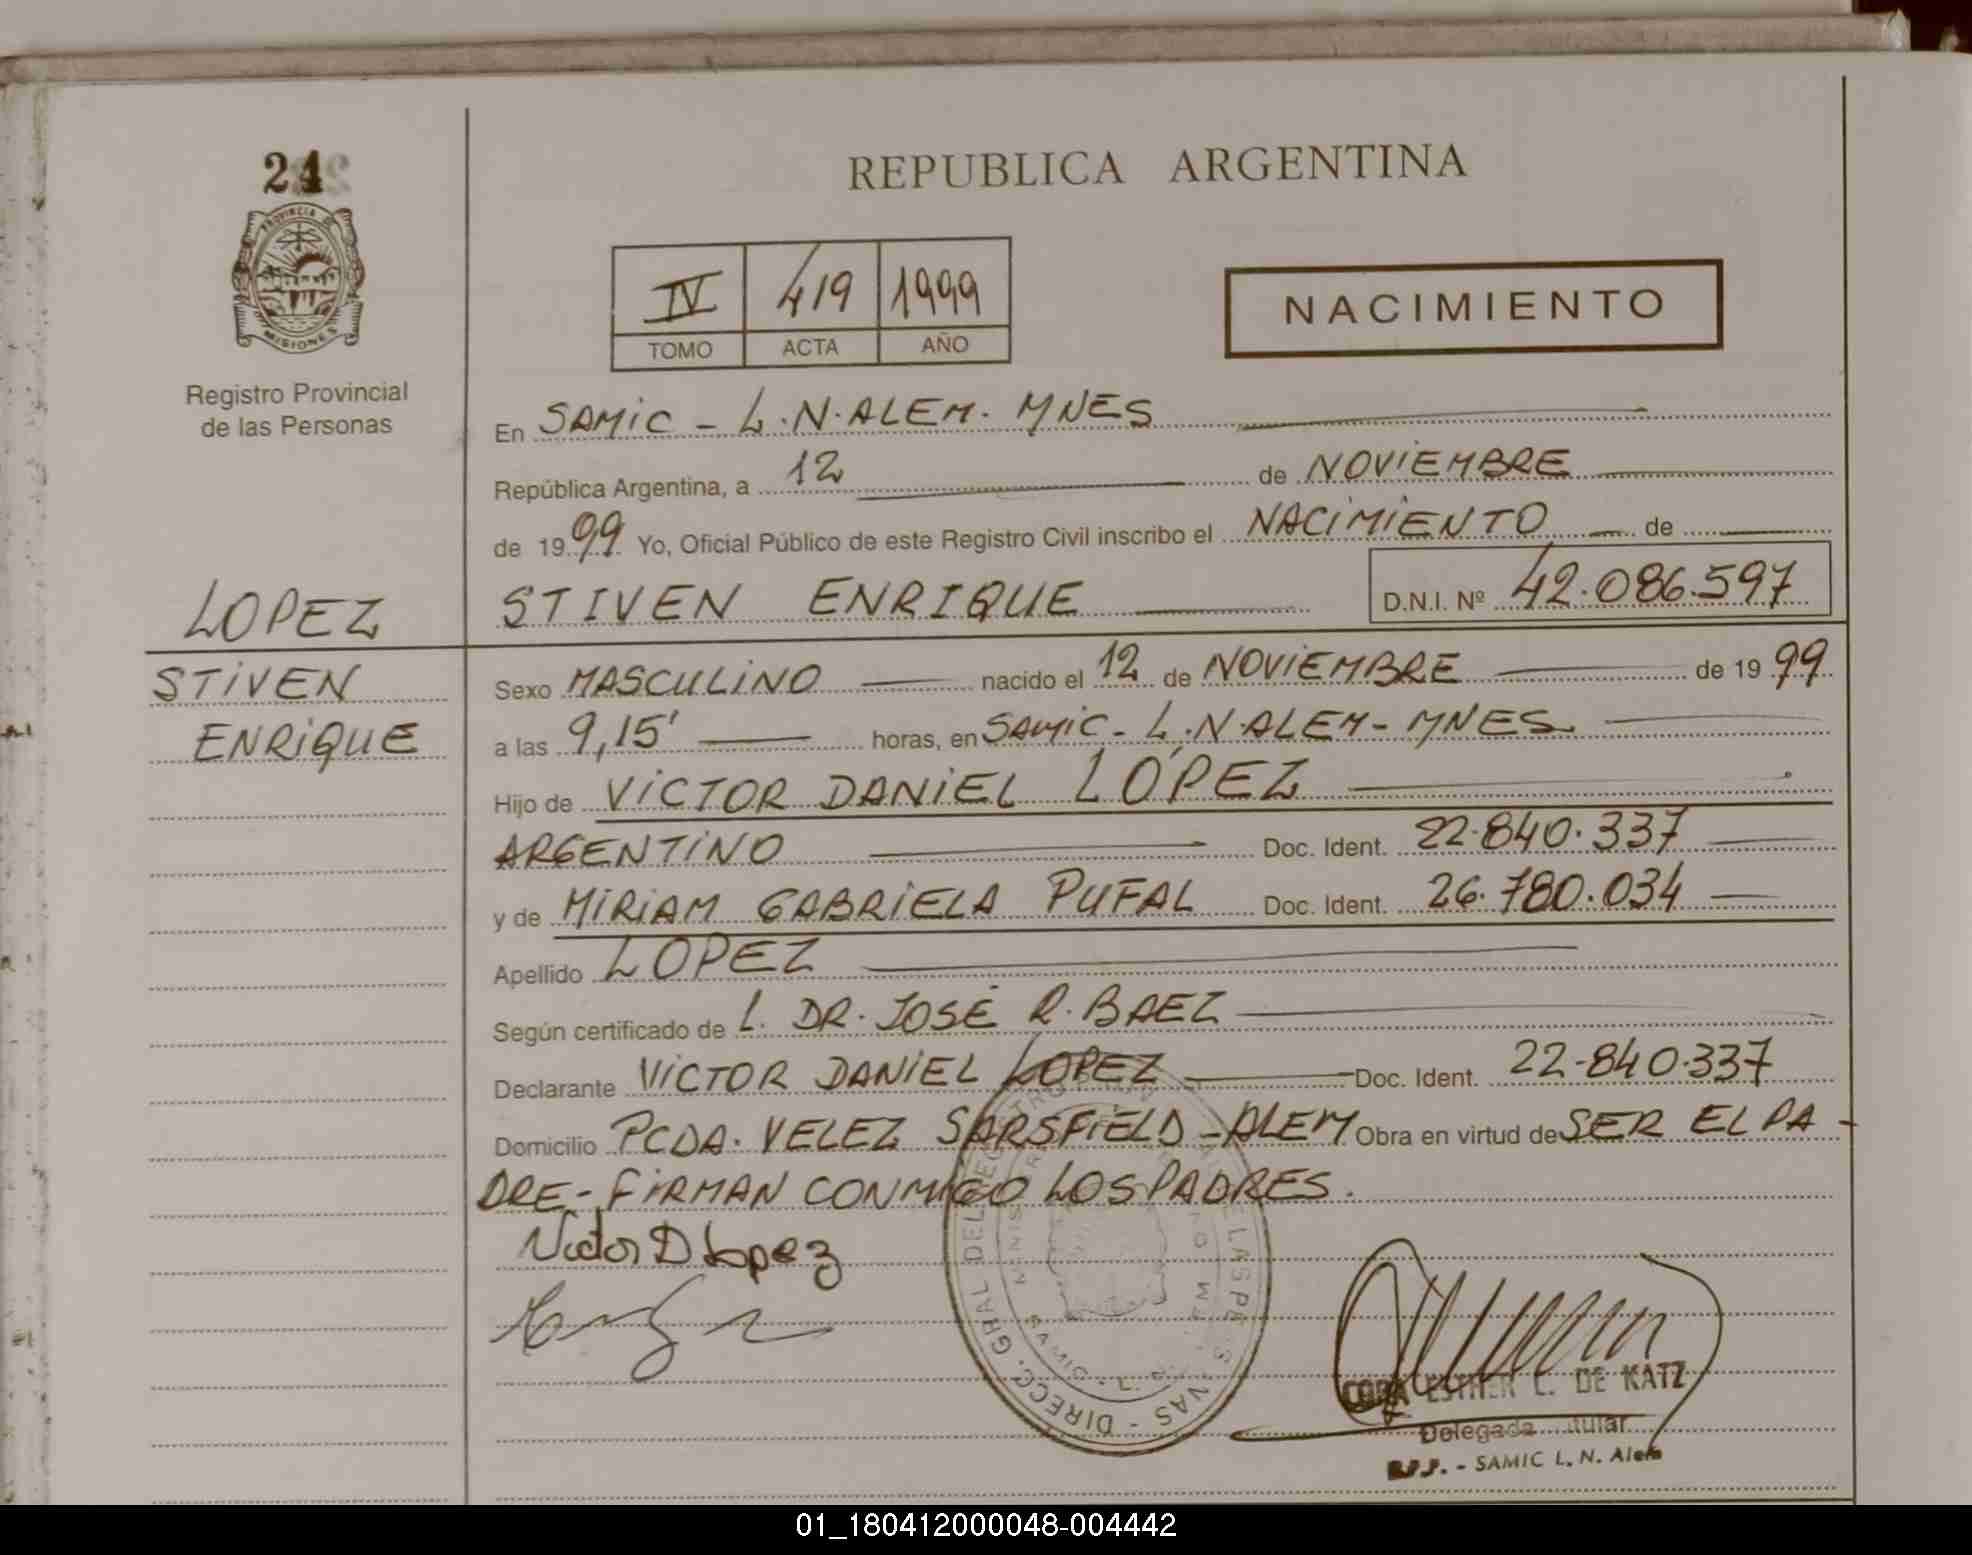 24
REPUBLICA ARGENTINA
PROVINCIA DE
MISIONES
Registro Provincial
de las Personas
IV 419 1999
TOMO ACTA AÑO
NACIMIENTO
En SAMIC - L.N.ALEM. MNES
República Argentina, a 12 de NOVIEMBRE
de 1999 Yo, Oficial Público de este Registro Civil inscribo el NACIMIENTO de
STIVEN ENRIQUE D.N.I. Nº 42.086.597
LOPEZ
STIVEN
ENRIQUE
Sexo MASCULINO nacido el 12 de NOVIEMBRE de 1999
a las 9,15' horas, en SAMIC - L.N.ALEM - MNES
Hijo de VICTOR DANIEL LÓPEZ
ARGENTINO Doc. Ident. 22.840.337
y de MIRIAM GABRIELA PUFAL Doc. Ident. 26.780.034
Apellido LOPEZ
Según certificado de L. DR. JOSÉ R. BAEZ
Declarante VICTOR DANIEL LOPEZ Doc. Ident. 22-840.337
Domicilio PCDA. VELEZ SARSFIELD - ALEM Obra en virtud de SER EL PA-
DRE - FIRMAN CONMIGO LOS PADRES.
Victor D Lopez
DIRECC. GRAL DEL
SAMIC - L.N.
ESTHER L. DE KATZ
Delegada
R.P.P. - SAMIC L. N. Alem
01_180412000048-004442